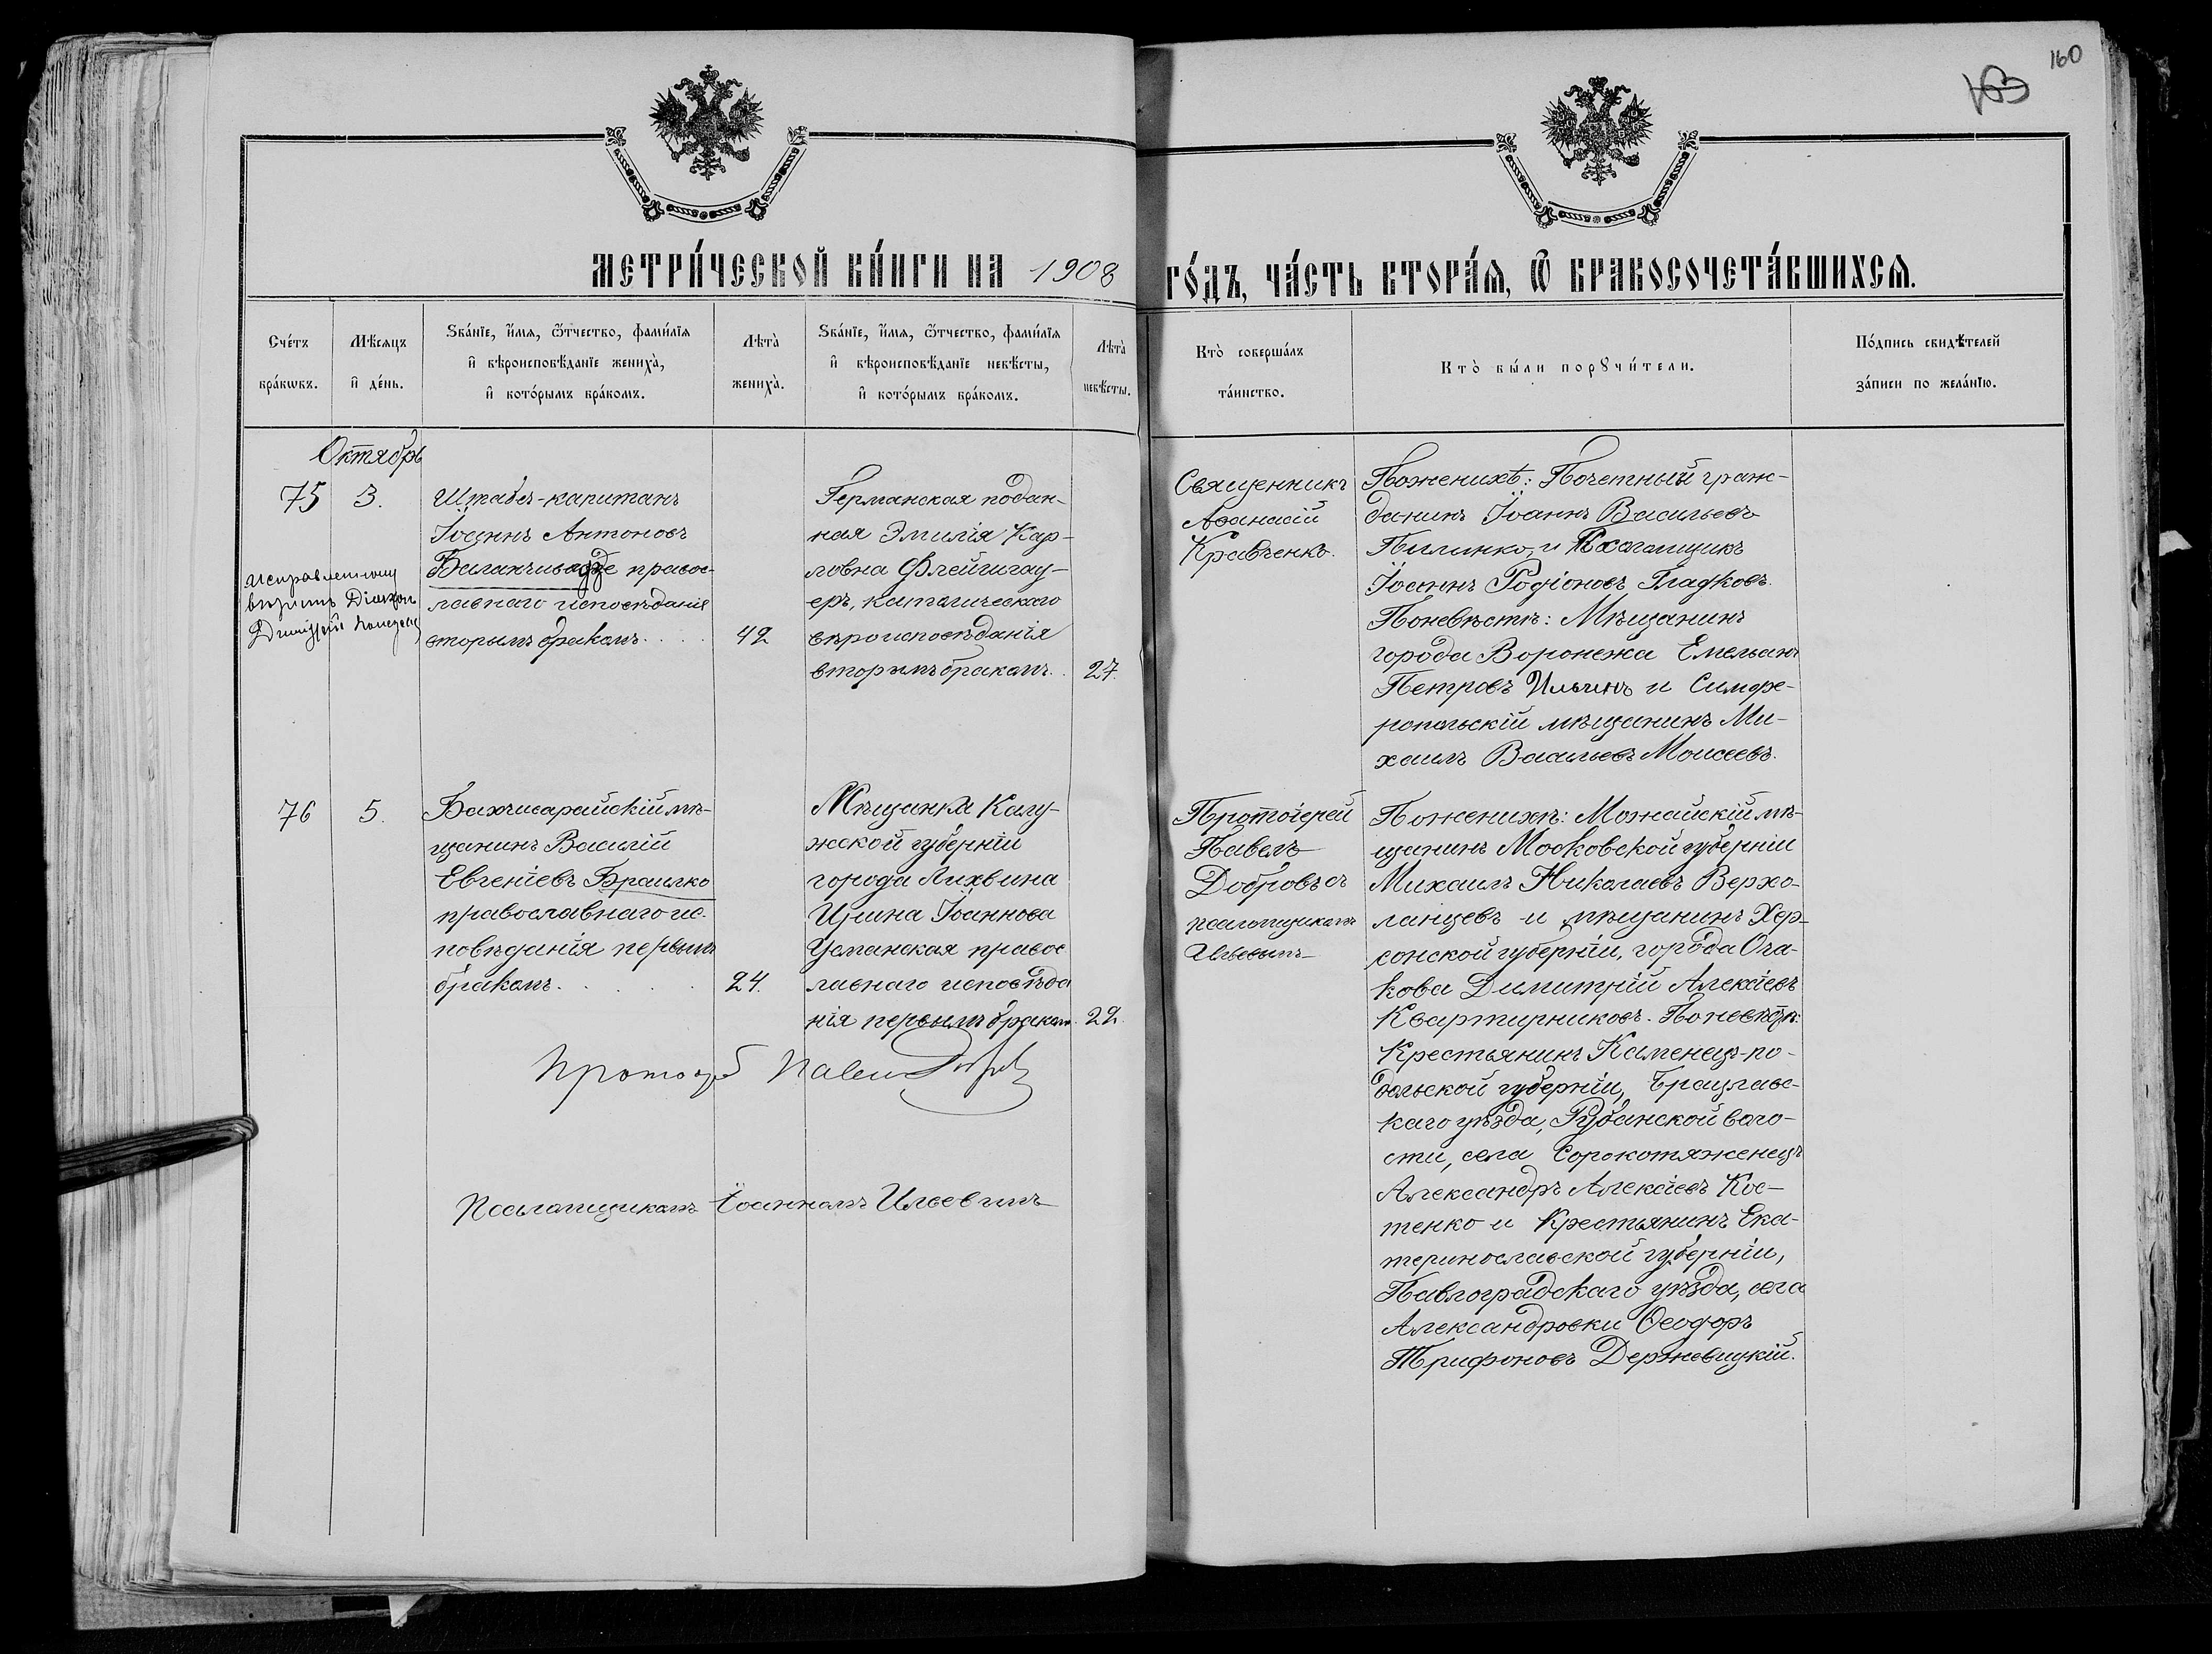 160
163
МЕТРИ́ЧЕСКОЙ КНИ́ГИ НА 1908 ГО́ДЪ, ЧА́СТЬ ВТОРА́Ѧ, Ѿ БРАКОСОЧЕТА́ВШИХСѦ.
Сче́тъ
бра́кωвъ.
Мѣ́сяцъ
и҆ де́нь.
Ѕва́нїе, и҆́мѧ, ѻ҆́тчество, фами́лїѧ
и҆ вѣроисповѣ́данїе жениха̀,
и҆ кото́рымъ бра́комъ.
Лѣта̀
жениха̀.
Ѕва́нїе, и҆́мѧ, ѻ҆́тчество, фами́лїѧ
и҆ вѣроисповѣ́данїе невѣ́сты,
и҆ кото́рымъ бра́комъ.
Лѣта̀
невѣ́сты.
Кто̀ соверша́лъ
та́инство.
Кто̀ бы́ли порꙋчи́тели.
По́дпись свидѣ́телей
за́писи по жела́нїю.
Октябрь
75
3.
Штабсъ-капитанъ
Іоаннъ Антоновъ
Баланчивадзе правос-
лавнаго исповѣданія
вторымъ бракомъ. . . .
42
исправленному
вѣримъ Діаконъ
Германская подан-
ная Эмилія Кар-
ловна Флейшгау-
еръ, католическаго
вѣроисповѣданія
вторымъ бракомъ. .
27.
Священникъ
Аѳанасій
Кравченко.
По женихѣ: Почетный граж-
данинъ Іоаннъ Васильевъ
Пилипко, и
Іоаннъ Родіоновъ Гладковъ.
По невѣстѣ: Мѣщанинъ
города Воронежа Емельянъ
Петровъ Ильинъ и Симфе-
ропольскій мѣщанинъ Ми-
хаилъ Васильевъ Моисеевъ.
76
5.
Бахчисарайскій мѣ-
щанинъ Василій
Евгеніевъ Браилко
православнаго ис-
повѣданія первымъ
бракомъ. . . . .
24.
Мѣщанка Калу-
жской губерніи
города Лихвина
Ирина Іоаннова
Усманская правос
лавнаго исповѣда
нія первымъ бракомъ.
22.
Протоіерей
Павелъ
Добровъ съ
псаломщикомъ
Ильевымъ
По женихѣ: Можайскій мѣ-
щанинъ Московской губерніи
Михаилъ Николаевъ Верхо-
ланцевъ и мѣщанинъ Хер-
сонской губерніи, города Оча-
кова Димитрій Алексіевъ
Квартирниковъ. По невѣстѣ:
Крестьянинъ Каменецъ-по-
дольской губерніи, Брацлавс-
каго уѣзда, Рубанской воло-
сти, села Сорокотяженецъ
Александръ Алексіевъ Кос-
тенко и Крестьянинъ Ека-
теринославской губерніи,
Павлоградскаго уѣзда, села
Александровки Ѳеодоръ
Трифоновъ Держевицкій.
Протоіер Павел Добров
Псаломщикомъ Іоанномъ Ильевымъ